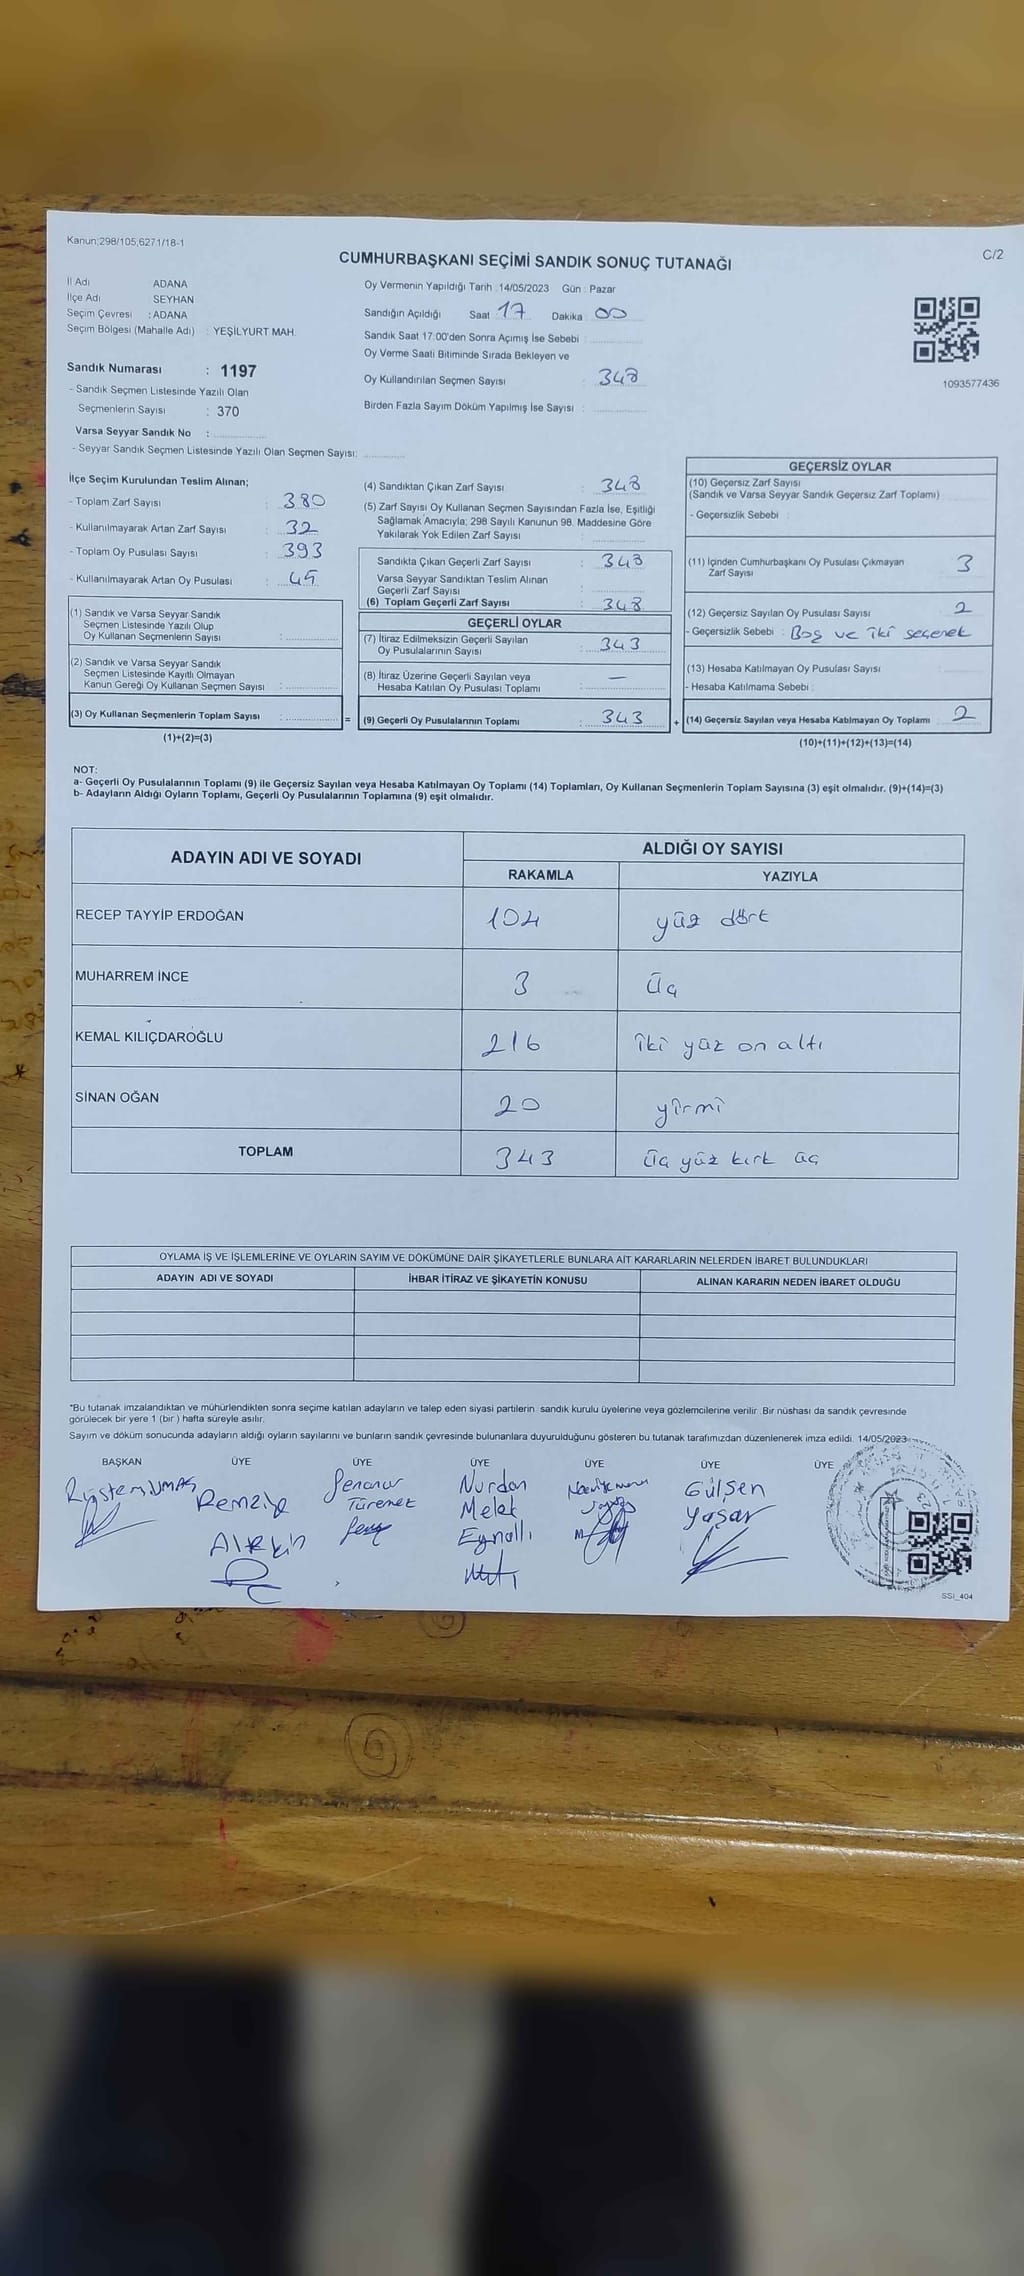 Kanun;298/105,6271/18-1
C/2
CUMHURBAŞKANI SEÇİMİ SANDIK SONUÇ TUTANAĞI
İl Adı ADANA
İlçe Adı SEYHAN
Seçim Çevresi : ADANA
Seçim Bölgesi (Mahalle Adı) : YEŞİLYURT MAH.
Sandık Numarası : 1197
- Sandık Seçmen Listesinde Yazılı Olan
Seçmenlerin Sayısı : 370
Varsa Seyyar Sandık No :
- Seyyar Sandık Seçmen Listesinde Yazılı Olan Seçmen Sayısı:
Oy Vermenin Yapıldığı Tarih :14/05/2023 Gün : Pazar
Sandığın Açıldığı Saat 17 Dakika 00
Sandık Saat 17:00'den Sonra Açımış İse Sebebi :
Oy Verme Saati Bitiminde Sırada Bekleyen ve
Oy Kullandırılan Seçmen Sayısı : 348
Birden Fazla Sayım Döküm Yapılmış İse Sayısı :
1093577436
İlçe Seçim Kurulundan Teslim Alınan;
- Toplam Zarf Sayısı : 380
- Kullanılmayarak Artan Zarf Sayısı : 32
- Toplam Oy Pusulası Sayısı : 393
- Kullanılmayarak Artan Oy Pusulası : 45
(1) Sandık ve Varsa Seyyar Sandık
Seçmen Listesinde Yazılı Olup
Oy Kullanan Seçmenlerin Sayısı :
(2) Sandık ve Varsa Seyyar Sandık
Seçmen Listesinde Kayıtlı Olmayan
Kanun Gereği Oy Kullanan Seçmen Sayısı :
(3) Oy Kullanan Seçmenlerin Toplam Sayısı :
(1)+(2)=(3)
(4) Sandıktan Çıkan Zarf Sayısı : 348
(5) Zarf Sayısı Oy Kullanan Seçmen Sayısından Fazla İse, Eşitliği
Sağlamak Amacıyla; 298 Sayılı Kanunun 98. Maddesine Göre
Yakılarak Yok Edilen Zarf Sayısı
Sandıkta Çıkan Geçerli Zarf Sayısı : 348
Varsa Seyyar Sandıktan Teslim Alınan
Geçerli Zarf Sayısı
(6) Toplam Geçerli Zarf Sayısı : 348
GEÇERLİ OYLAR
(7) İtiraz Edilmeksizin Geçerli Sayılan
Oy Pusulalarının Sayısı : 343
(8) İtiraz Üzerine Geçerli Sayılan veya
Hesaba Katılan Oy Pusulası Toplamı : —
=
(9) Geçerli Oy Pusulalarının Toplamı : 343
+
GEÇERSİZ OYLAR
(10) Geçersiz Zarf Sayısı
(Sandık ve Varsa Seyyar Sandık Geçersiz Zarf Toplamı)
- Geçersizlik Sebebi :
(11) İçinden Cumhurbaşkanı Oy Pusulası Çıkmayan
Zarf Sayısı 3
(12) Geçersiz Sayılan Oy Pusulası Sayısı 2
- Geçersizlik Sebebi : Boş ve iki seçenek
(13) Hesaba Katılmayan Oy Pusulası Sayısı
- Hesaba Katılmama Sebebi :
(14) Geçersiz Sayılan veya Hesaba Katılmayan Oy Toplamı 2
(10)+(11)+(12)+(13)=(14)
NOT:
a- Geçerli Oy Pusulalarının Toplamı (9) ile Geçersiz Sayılan veya Hesaba Katılmayan Oy Toplamı (14) Toplamları, Oy Kullanan Seçmenlerin Toplam Sayısına (3) eşit olmalıdır. (9)+(14)=(3)
b- Adayların Aldığı Oyların Toplamı, Geçerli Oy Pusulalarının Toplamına (9) eşit olmalıdır.
ADAYIN ADI VE SOYADI ALDIĞI OY SAYISI
RAKAMLA YAZIYLA
RECEP TAYYİP ERDOĞAN 104 yüz dört
MUHARREM İNCE 3 üç
KEMAL KILIÇDAROĞLU 216 iki yüz on altı
SİNAN OĞAN 20 yirmi
TOPLAM 343 üç yüz kırk üç
OYLAMA İŞ VE İŞLEMLERİNE VE OYLARIN SAYIM VE DÖKÜMÜNE DAİR ŞİKAYETLERLE BUNLARA AİT KARARLARIN NELERDEN İBARET BULUNDUKLARI
ADAYIN ADI VE SOYADI İHBAR İTİRAZ VE ŞİKAYETİN KONUSU ALINAN KARARIN NEDEN İBARET OLDUĞU
*Bu tutanak imzalandıktan ve mühürlendikten sonra seçime katılan adayların ve talep eden siyasi partilerin sandık kurulu üyelerine veya gözlemcilerine verilir. Bir nüshası da sandık çevresinde
görülecek bir yere 1 (bir) hafta süreyle asılır.
Sayım ve döküm sonucunda adayların aldığı oyların sayılarını ve bunların sandık çevresinde bulunanlara duyurulduğunu gösteren bu tutanak tarafımızdan düzenlenerek imza edildi. 14/05/2023
BAŞKAN ÜYE ÜYE ÜYE ÜYE ÜYE ÜYE
Remziye
Şenanur
Türemez
Nurdan
Melek
Gülşen
Yaşar
SSI_404